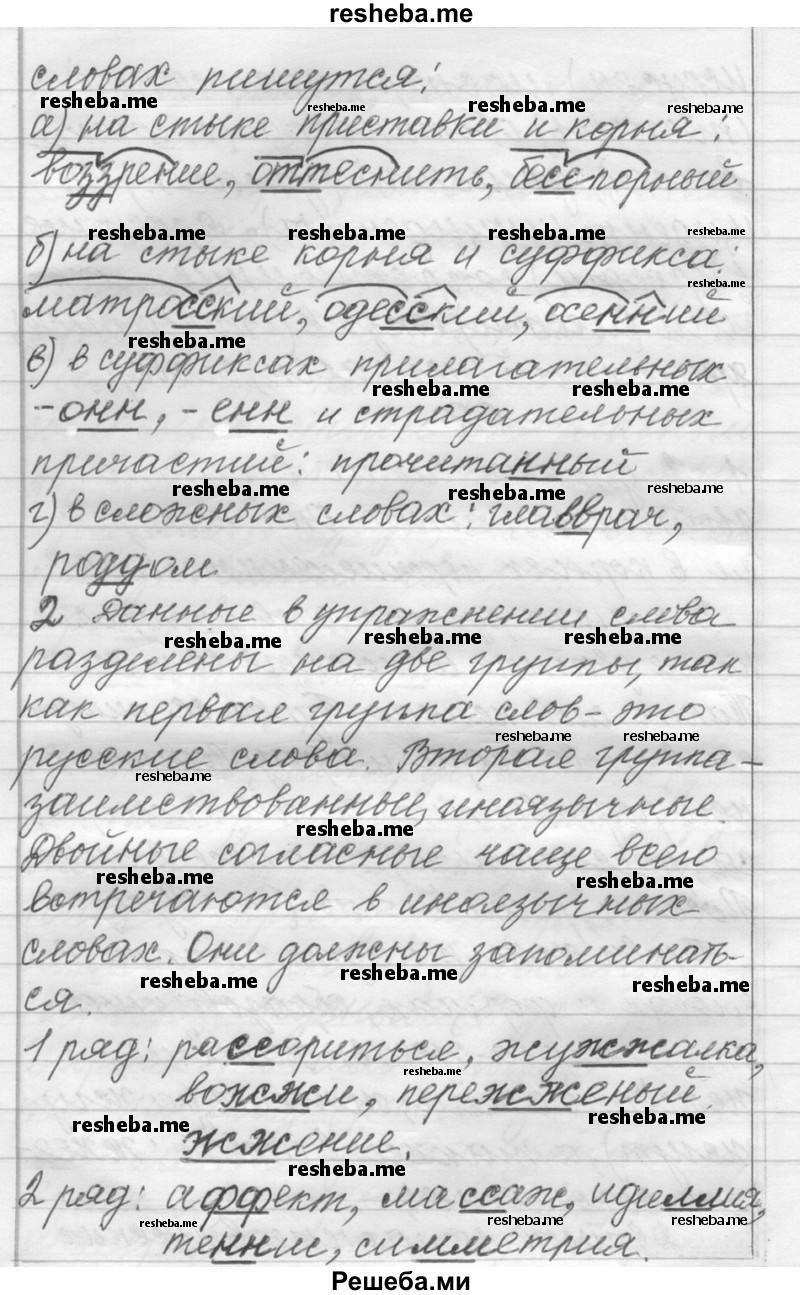 resheba.me
словах пишутся:
resheba.me resheba.me resheba.me resheba.me
а) на стыке приставки и корня:
воззрение, оттеснить, бесспорный
resheba.me resheba.me resheba.me resheba.me
б) на стыке корня и суффикса:
resheba.me
матросский, одесский, осенний
resheba.me
в) в суффиксах прилагательных
resheba.me resheba.me
-онн, -енн и страдательных
причастий: прочитанный
resheba.me resheba.me resheba.me
г) в сложных словах: главврач,
роддом
2 Данные в упражнении слова
resheba.me resheba.me resheba.me
разделены на две группы, так
как первая группа слов - это
resheba.me resheba.me
русские слова. Вторая группа -
resheba.me
заимствованные, иноязычные.
resheba.me
Двойные согласные чаще всего
resheba.me resheba.me
встречаются в иноязычных
словах. Они должны запоминать-
resheba.me resheba.me resheba.me
ся.
1 ряд: рассориться, жужжалка,
resheba.me
вожжи, пережженый,
resheba.me resheba.me
жжение.
resheba.me
2 ряд: аффект, массаж, идиллия,
resheba.me resheba.me resheba.me
теннис, симметрия.
Решеба.ми